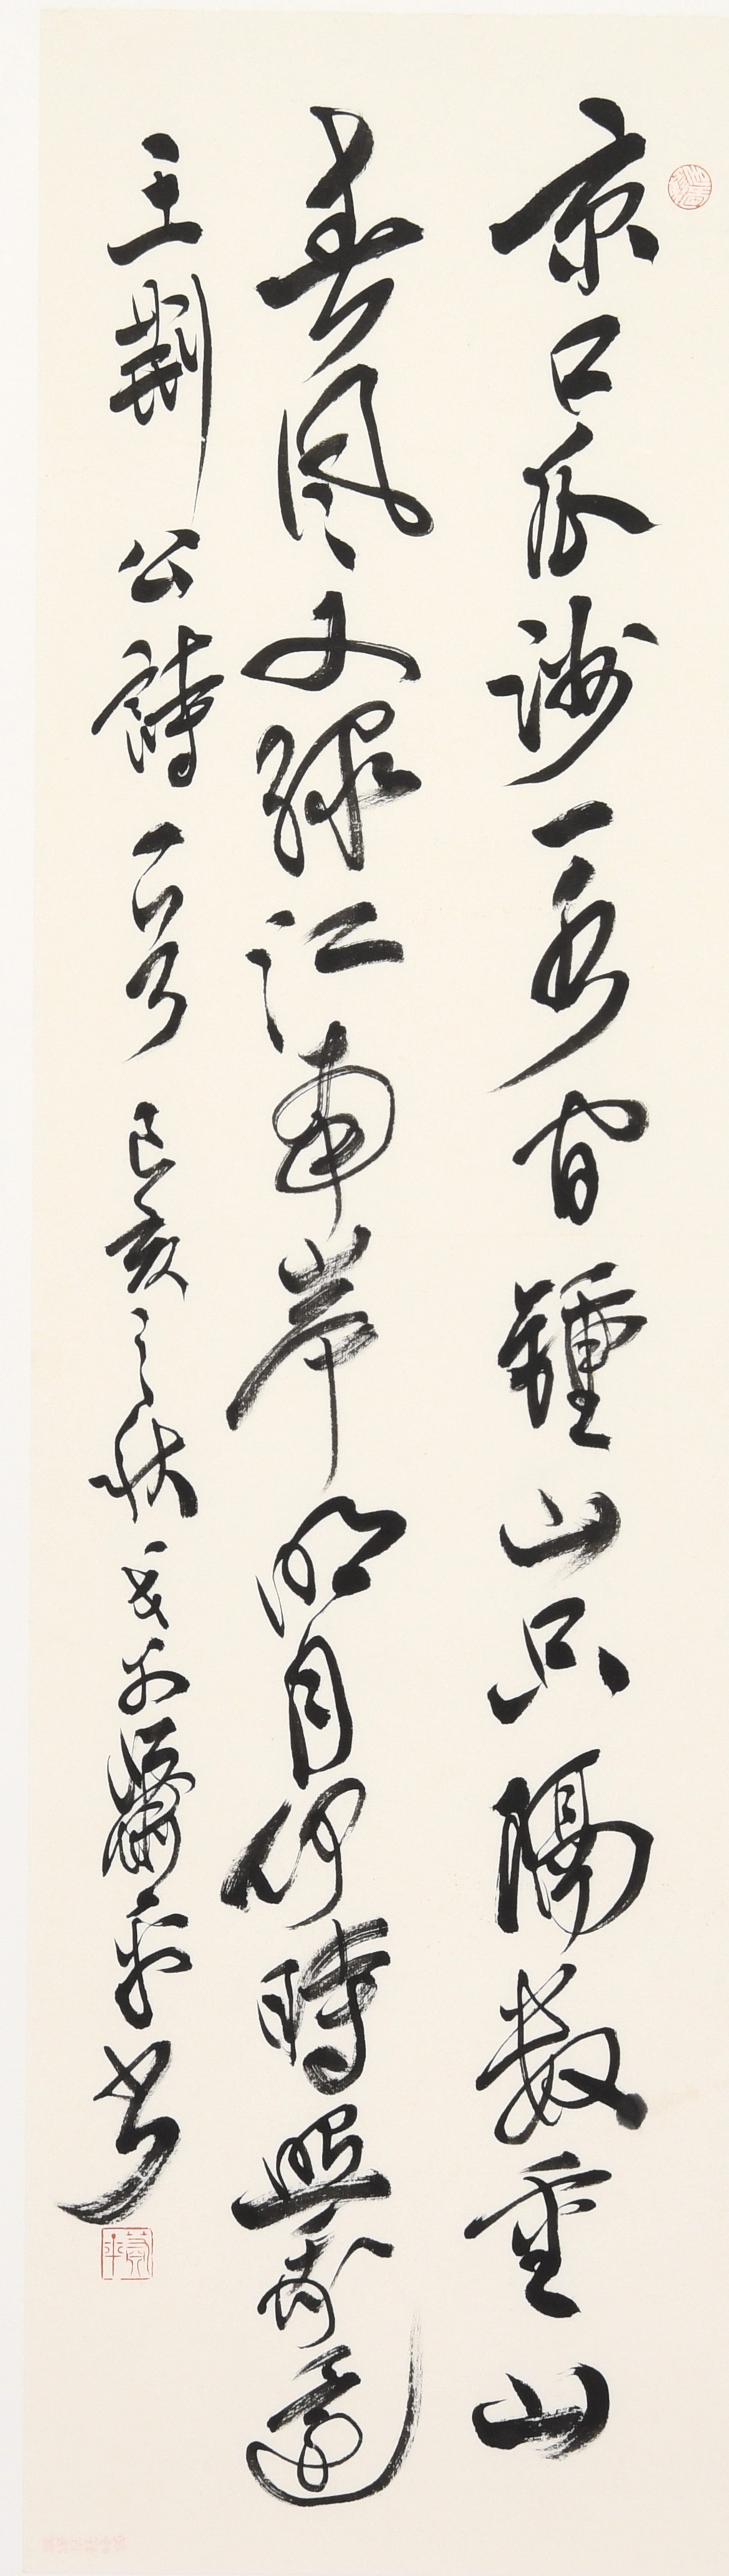 京口瓜洲一水间鍾山只隔數重山
春風又綠江南岸明月何時照我還
王荆公詩一首 己亥之秋 書